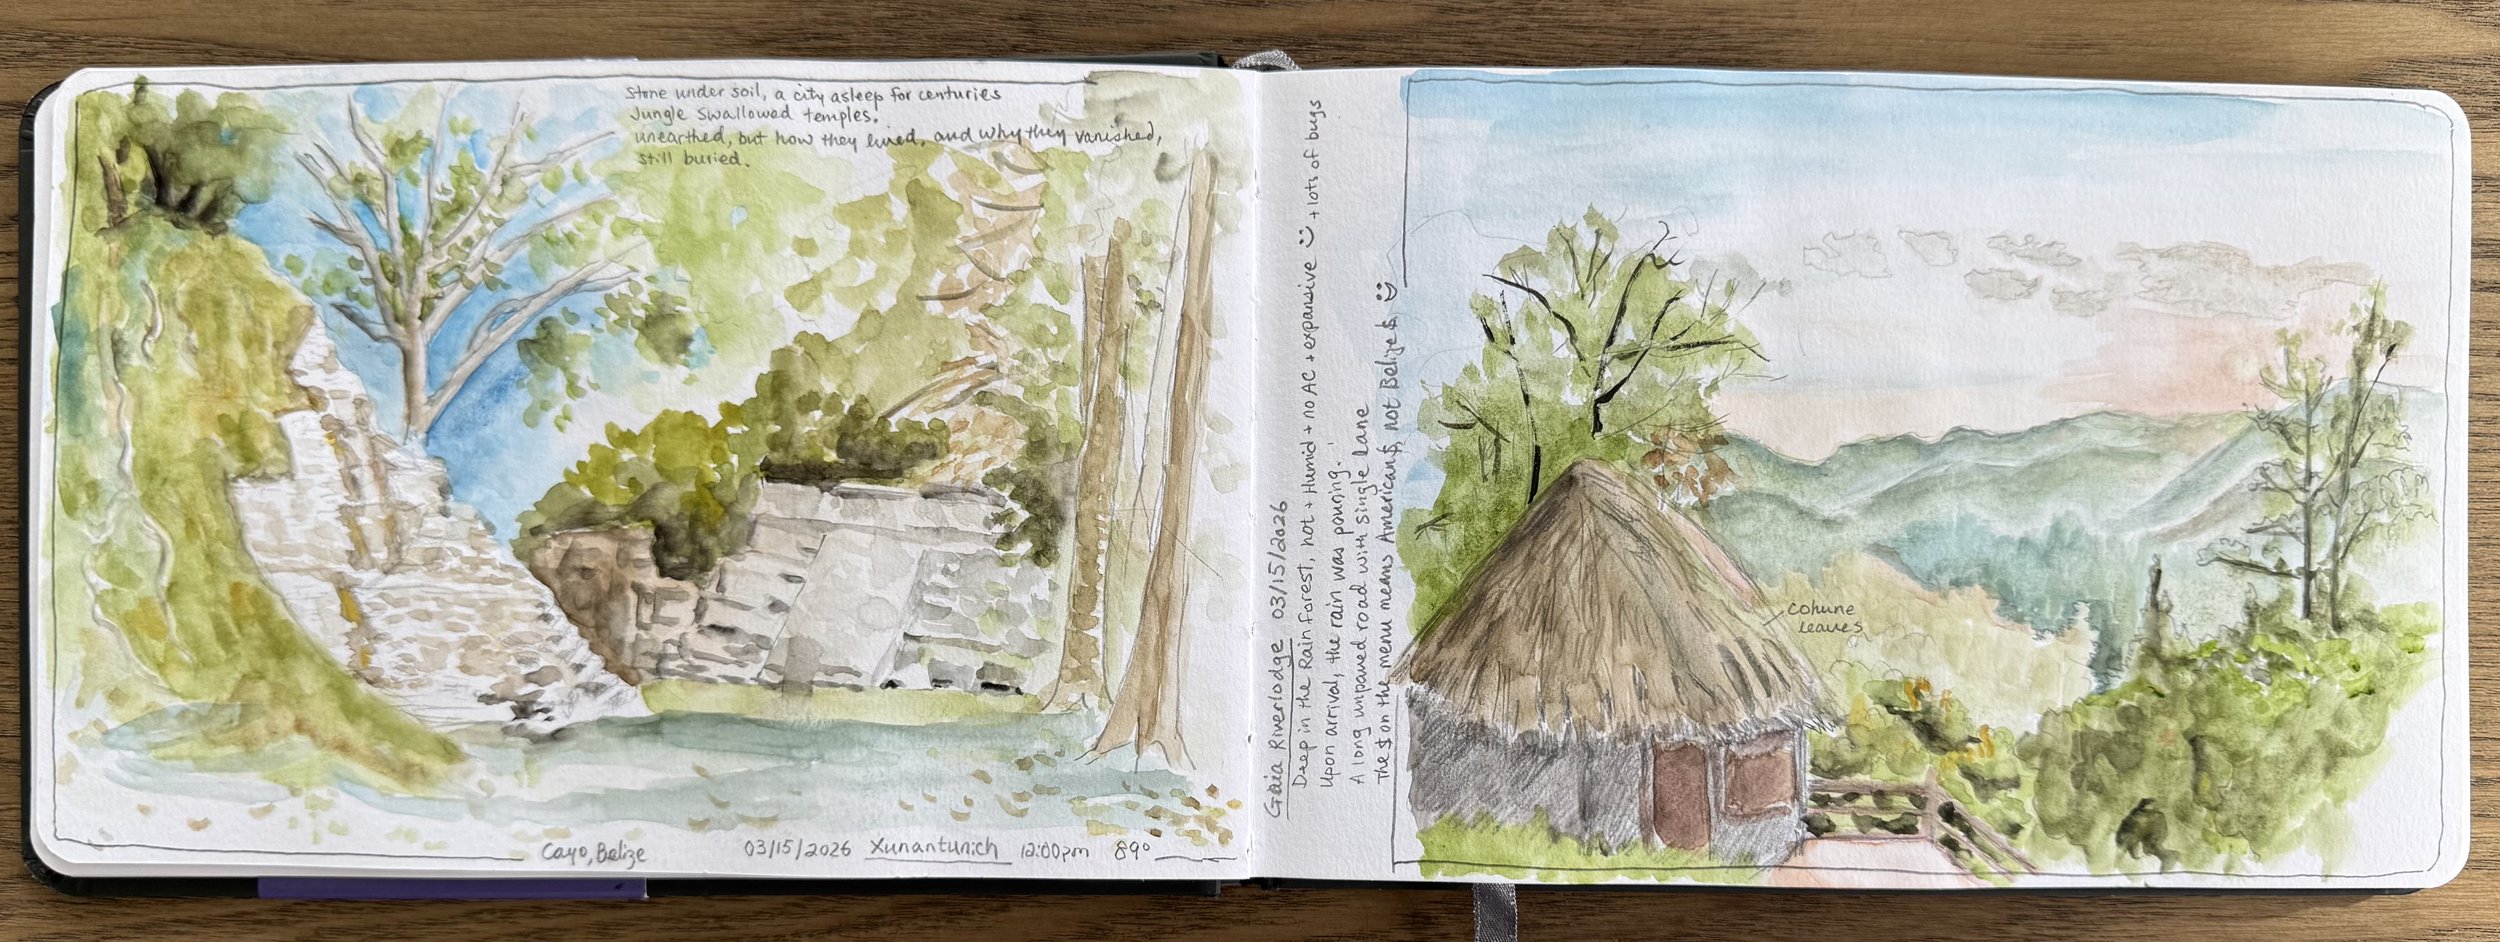 Stone under soil, a city asleep for centuries
Jungle swallowed temples.
unearthed, but how they lived, and why they vanished,
still buried.
Cayo, Belize
03/15/2026 Xunantunich 12:00pm 89°
Gaia Riverlodge 03/15/2026
Deep in the Rain forest, hot + Humid + no AC + expansive + lots of bugs
Upon arrival, the rain was pouring.
Along unpaved road with single lane
The $ on the menu means American $, not Belize $
cohune
leaves